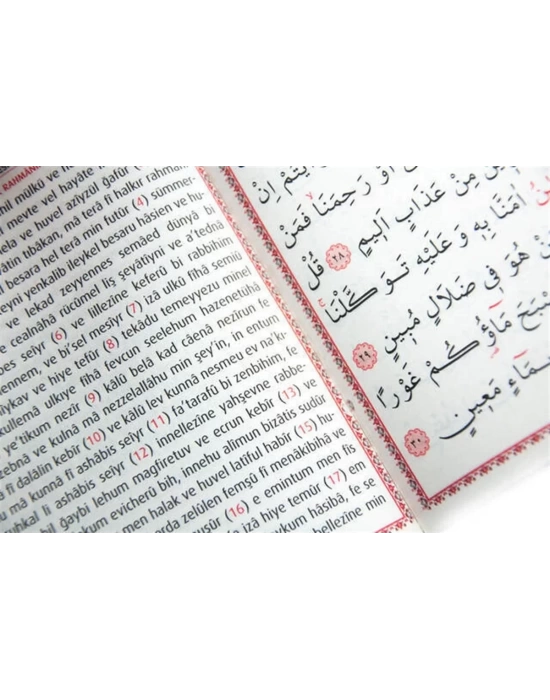 RAHMAN
mil mülkü ve h
meyte vel hayâte
ela ve huvel azîyzül gafûr
âtin tıbâkan, mâ terâ fî halkır rahmân
l besara hel terâ min futûr (4) sümmer-
eyni yenkalib ileykel besaru hâsien ve hu-
ve lekad zeyyennes semâed dünyâ bi
ve cealnâhâ rücûmel liş şeyâtîyni ve a'tednâ
bes seıyr (6) ve lillezîne keferû bi rabbihim
ennem, ve bi'sel mesîyr (7) izâ ulkû fîhâ semiû
hîykav ve hiye tefûr (8) tekâdu temeyyezu minel
kullemâ ulkıye fîhâ fevcun seelehum hazenetühâ
e'tikum nezîr (9) kâlû belâ kad câenâ nezîrun fe
zebnâ ve kulnâ mâ nezzelallâhu min şey'in, in entum
â fî dalâlin kebîr (10) ve kâlû lev kunnâ nesmeu ev na'k-
mâ kunnâ fî ashâbis seıyr (11) fa'terafû bi zenbihim, fe
uhkal li ashâbis seıyr (12) innellezîne yahşevne rabbe-
bil ğaybi lehum mağfiretuv ve ecrun kebîr (13) ve
kum evicherû bih, innehu alîmun bizâtis sudûr
men halak ve huvel latîful habîr (15) hu-
arda zelûlen femşû fî menâkibihâ ve
nuşûr (16) e emintum men fis
e izâ hiye temûr (17) em
aykum hâsıbâ, fe se
bellezîne min
اَوْ رَحِمَنَا فَمَنْ
مِنْ عَذَابٍ اَلِيمٍ ٢٨ قُلْ
اٰمَنَّا بِهِ وَعَلَيْهِ تَوَكَّلْنَا
هُوَ فِي ضَلَالٍ مُبِينٍ ٢٩
مَاؤُكُمْ غَوْرًا
مَعِينٍ ٣٠